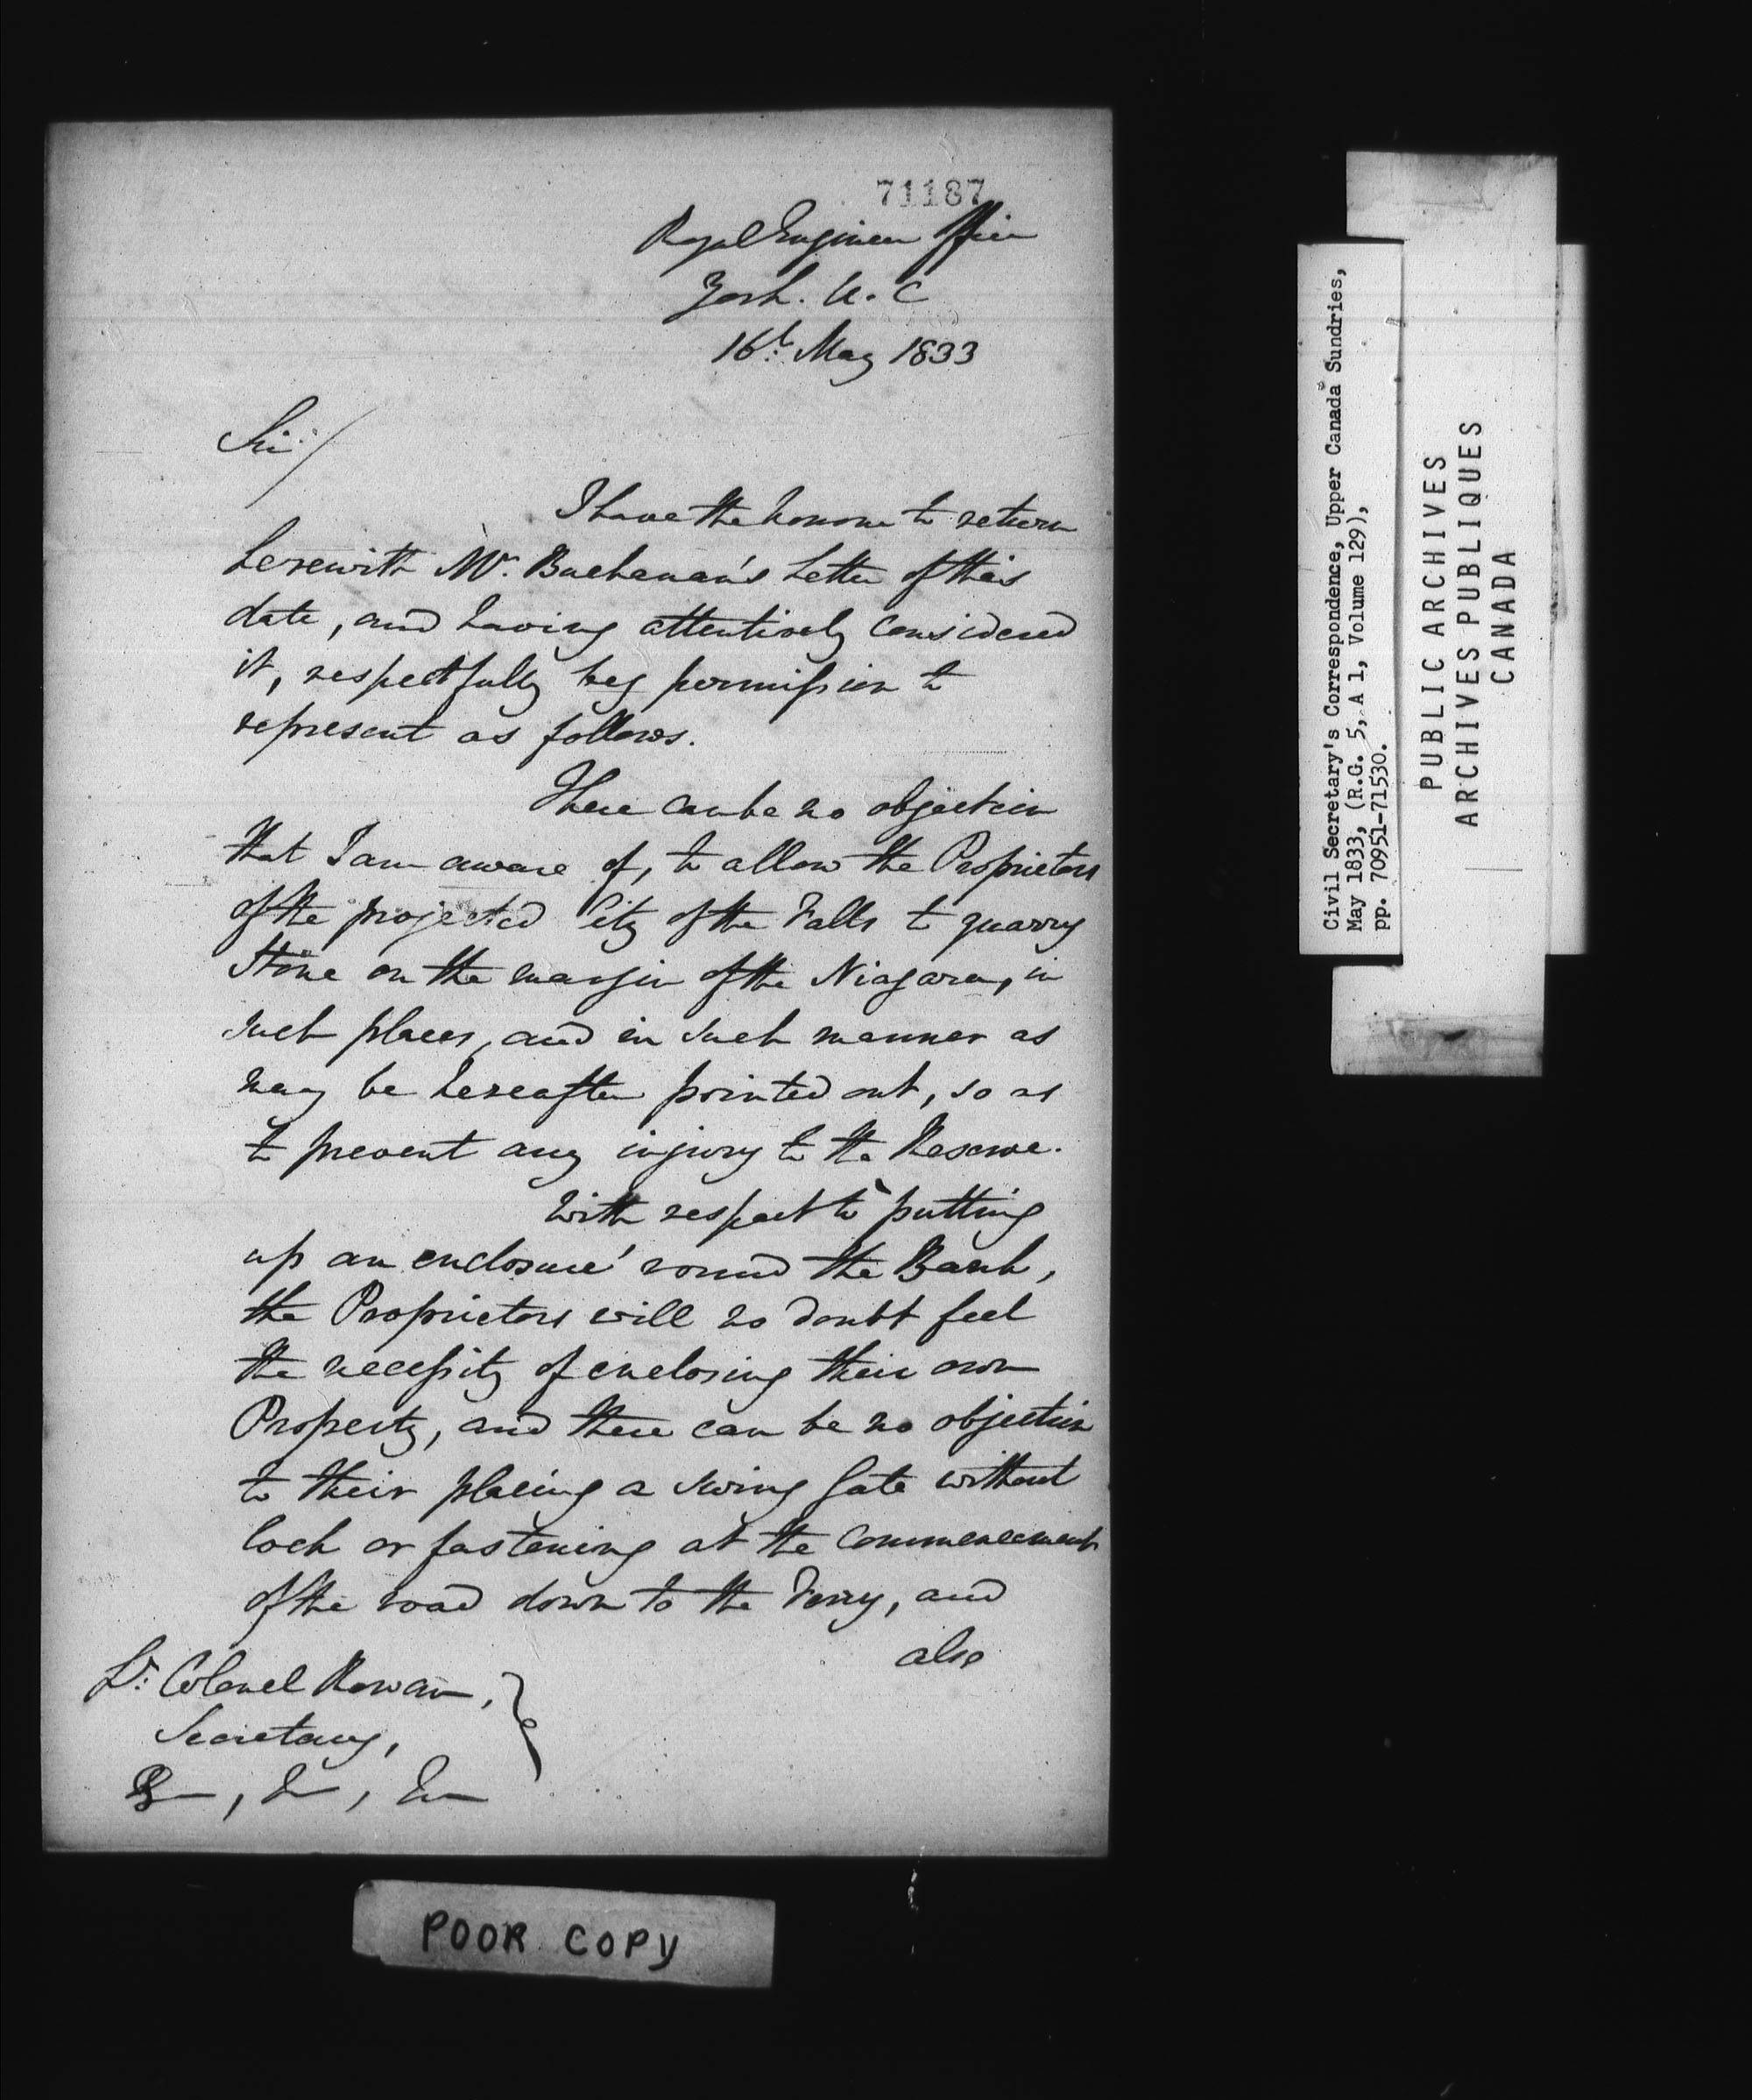 71187
Royal Engineer Office
York. U. C
16th May 1833
Sir/
I have the honour to return
herewith Mr. Buchanan's Letter of this
date, and having attentively considered
it, respectfully beg permission to
represent as follows.
There can be no objection
that I am aware of, to allow the Proprietors
of the projected City of the Falls to quarry
Stone on the margin of the Niagara, in
such places, and in such manner as
may be hereafter pointed out, so as
to prevent any injury to the Reserve.
With respect to putting
up an enclosure round the Bank,
the Proprietors will no doubt feel
the necessity of enclosing their own
Property, and there can be no objection
to their placing a swing Gate without
lock or fastening at the Commencement
of the road down to the Ferry, and
also
Lt. Colonel Rowan,
Secretary,
&c, &c, &c
POOR COPY
Civil Secretary's Correspondence, Upper Canada Sundries,
May 1833, (R.G. 5, A 1, Volume 129),
pp. 70951-71530.
PUBLIC ARCHIVES
ARCHIVES PUBLIQUES
CANADA